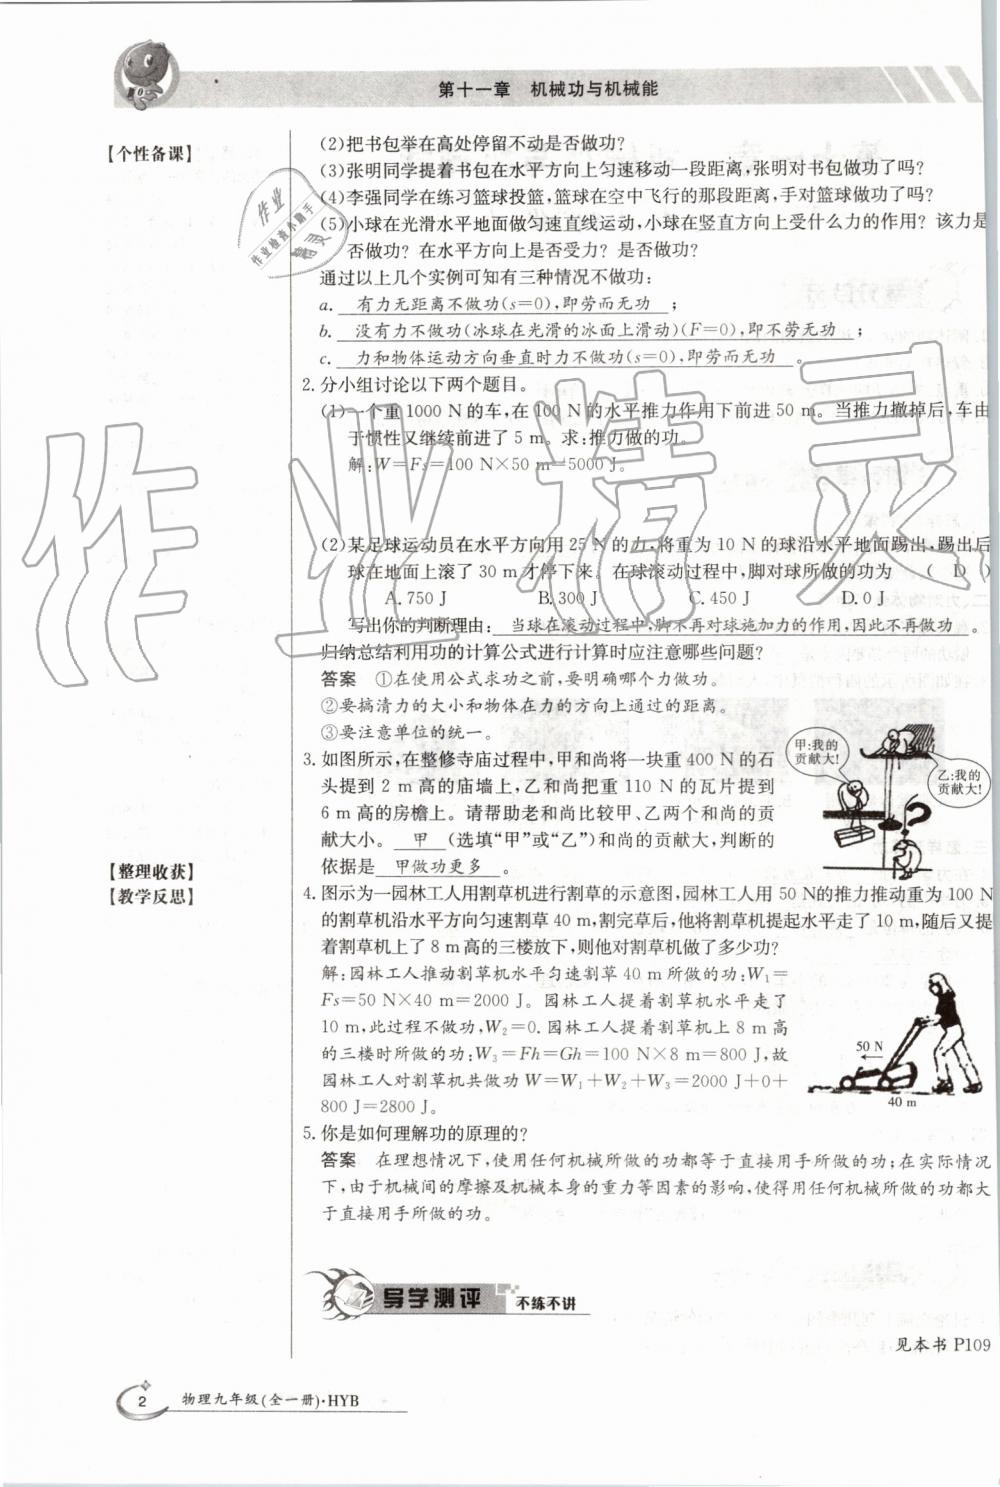 第十一章 机械功与机械能
【个性备课】
(2)把书包举在高处停留不动是否做功?
(3)张明同学提着书包在水平方向上匀速移动一段距离,张明对书包做功了吗?
(4)李强同学在练习篮球投篮,篮球在空中飞行的那段距离,手对篮球做功了吗?
(5)小球在光滑水平地面做匀速直线运动,小球在竖直方向上受什么力的作用? 该力是
否做功? 在水平方向上是否受力? 是否做功?
通过以上几个实例可知有三种情况不做功:
a. 有力无距离不做功(s=0),即劳而无功 ;
b. 没有力不做功(冰球在光滑的冰面上滑动)(F=0),即不劳无功 ;
c. 力和物体运动方向垂直时力不做功(s=0),即劳而无功 。
2. 分小组讨论以下两个题目。
(1)一个重1000 N的车,在100 N的水平推力作用下前进50 m。当推力撤掉后,车由
于惯性又继续前进了5 m。求:推力做的功。
解:W=Fs=100 N×50 m=5000 J。
(2)某足球运动员在水平方向用25 N的力,将重为10 N的球沿水平地面踢出,踢出后
球在地面上滚了30 m才停下来。在球滚动过程中,脚对球所做的功为 ( D )
A. 750 J B. 300 J C. 450 J D. 0 J
写出你的判断理由: 当球在滚动过程中,脚不再对球施加力的作用,因此不再做功 。
归纳总结利用功的计算公式进行计算时应注意哪些问题?
答案 ①在使用公式求功之前,要明确哪个力做功。
②要搞清力的大小和物体在力的方向上通过的距离。
③要注意单位的统一。
3. 如图所示,在整修寺庙过程中,甲和尚将一块重400 N的石
头提到2 m高的庙墙上,乙和尚把重110 N的瓦片提到
6 m高的房檐上。请帮助老和尚比较甲、乙两个和尚的贡
献大小。 甲 (选填“甲”或“乙”)和尚的贡献大,判断的
依据是 甲做功更多 。
甲:我的
贡献大!
乙:我的
贡献大!
【整理收获】
【教学反思】
4. 图示为一园林工人用割草机进行割草的示意图,园林工人用50 N的推力推动重为100 N
的割草机沿水平方向匀速割草40 m,割完草后,他将割草机提起水平走了10 m,随后又提
着割草机上了8 m高的三楼放下,则他对割草机做了多少功?
解:园林工人推动割草机水平匀速割草40 m所做的功:W₁=
Fs=50 N×40 m=2000 J。园林工人提着割草机水平走了
10 m,此过程不做功,W₂=0.园林工人提着割草机上8 m高
的三楼时所做的功:W₃=Fh=Gh=100 N×8 m=800 J,故
园林工人对割草机共做功W=W₁+W₂+W₃=2000 J+0+
800 J=2800 J。
50 N
40 m
5. 你是如何理解功的原理的?
答案 在理想情况下,使用任何机械所做的功都等于直接用手所做的功;在实际情况
下,由于机械间的摩擦及机械本身的重力等因素的影响,使得用任何机械所做的功都大
于直接用手所做的功。
导学测评 不练不讲
见本书P109
2 物理九年级(全一册)·HYB
作业精灵
作业
作业检查小助手
精灵